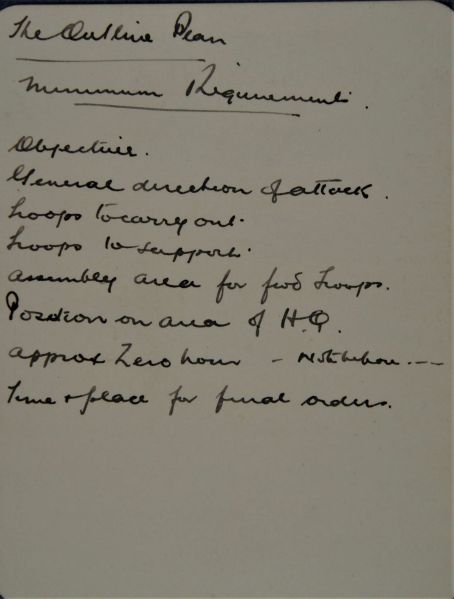 The Outline Plan
Minimum Requirements.
Objective.
General direction of attack.
Troops to carry out.
Troops to support.
Assembly area for fwd Troops.
Position or area of H.Q.
Approx Zero hour - Not before ---
Time & place for final orders.